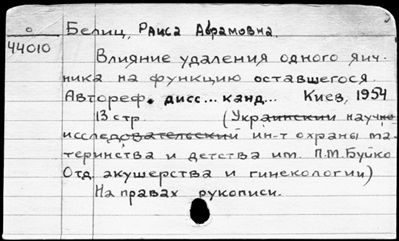 Белиц, Раиса Абрамовна.
44010
Влияние удаления одного яич-
ника на функцию оставшегося.
Автореф. дисс... канд... Киев, 1954
13 стр. (Украинский научно
исследовательский ин-т охраны ма-
теринства и детства им. П.М.Буйко
Отд акушерства и гинекологии)
На правах рукописи.